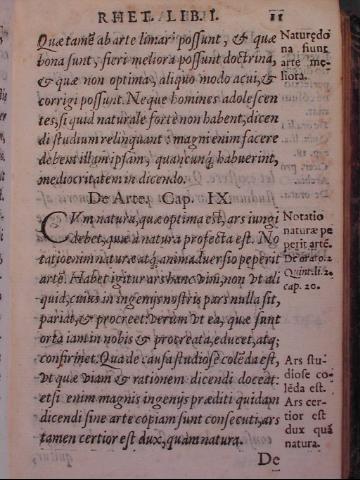 RHET. LIB. I. 11
Quæ tamē ab arte limari possunt, & quæ
bona sunt, fieri meliora possunt doctrina,
& quæ non optima, aliquo modo acui, &
corrigi possunt. Neque homines adolescen
tes, si quid naturale fortè non habent, dicen
di studium relinquant: magni enim facere
debent illam ipsam, quancunq; habuerint,
mediocritatem in dicendo.
Naturę do
na fiunt
arte me-
liora.
De Arte, Cap. IX.
CVm natura, quæ optima est, ars iungi
debet, quæ à natura profecta est. No
tatio enim naturæ atq; animaduersio peperit
artē. Habet igitur ars hanc vim, non vt ali
quid, cuius in ingenijs nostris pars nulla sit,
pariat, & procreet: verùm vt ea, quæ sunt
orta iam in nobis & procreata, educet, atq;
confirmet. Qua de causa studiosè colēda est,
vt quæ viam & rationem dicendi doceat:
etsi enim magnis ingenijs præditi quidam
dicendi sine arte copiam sunt consecuti, ars
tamen certior est dux, quàm natura.
Notatio
naturæ pe
perit artē.
De orato. 2
Quint. li. 2.
cap. 20.
Ars stu-
diosè co-
lēda est.
Ars cer-
tior est
dux quā
natura.
De